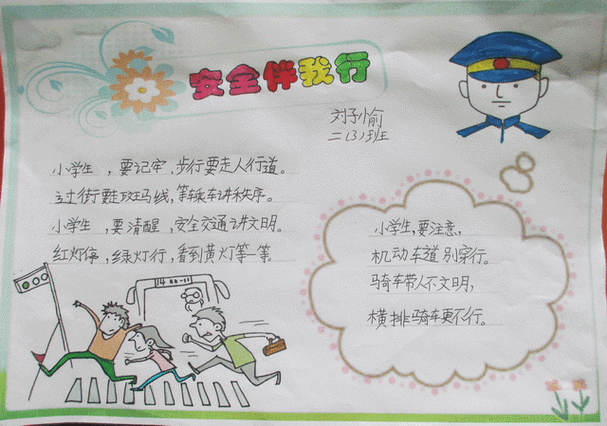 安全伴我行
刘子愉
二(3)班
小学生，要记牢，步行要走人行道。
过街要走斑马线，等乘车讲秩序。
小学生，要清醒，安全交通讲文明。
红灯停，绿灯行，看到黄灯等一等。
小学生，要注意，
机动车道别穿行。
骑车带人不文明，
横排骑车更不行。